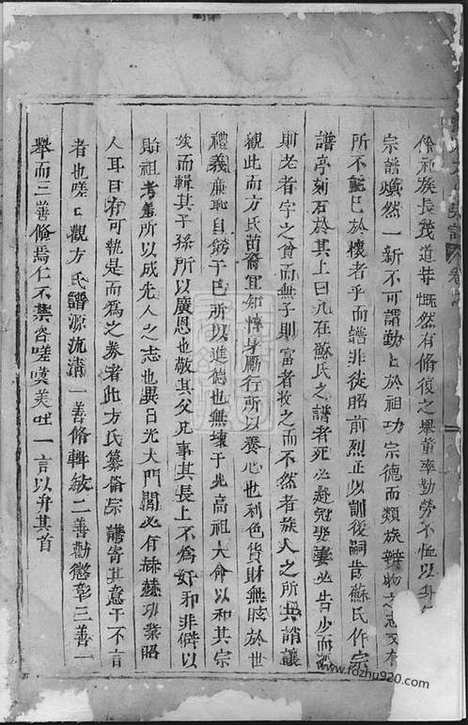 族長茂道甞慨然有脩復之舉董率勤勞不恤以
宗譜煥然一新不可謂勤上於祖功宗德而類族辨物之志又
所不能已於懷者乎而譜非從昭前烈正以訓後嗣昔蘇氏作宗
譜亭刻石於其上曰凡在蘇氏之譜者死必赴冠娶妻必告少而孤
則老者字之貧而無子則富者收之而不然者族人之所共誚讓
觀此而方氏苗裔宜知悖身勵行所以養心也利色貨財無眩於世
禮義廉恥自飭于己所以進德也無壞于先高祖大會以和其宗
族而輯其子孫所以廣恩也敬其父兄事其長上不為奸邪非僻以
貽祖考羞所以成先人之志也異日光大門閭必有赫赫功業昭
人耳目有可執是而為之券者此方氏纂脩宗譜寄其意于不言
者也嗟上觀方氏譜源流清一善脩輯敏二善勸懲彰三善一
舉而三善脩焉仁不羨咨嗟嘆美吐一言以弁其首
www.fozhu920.com